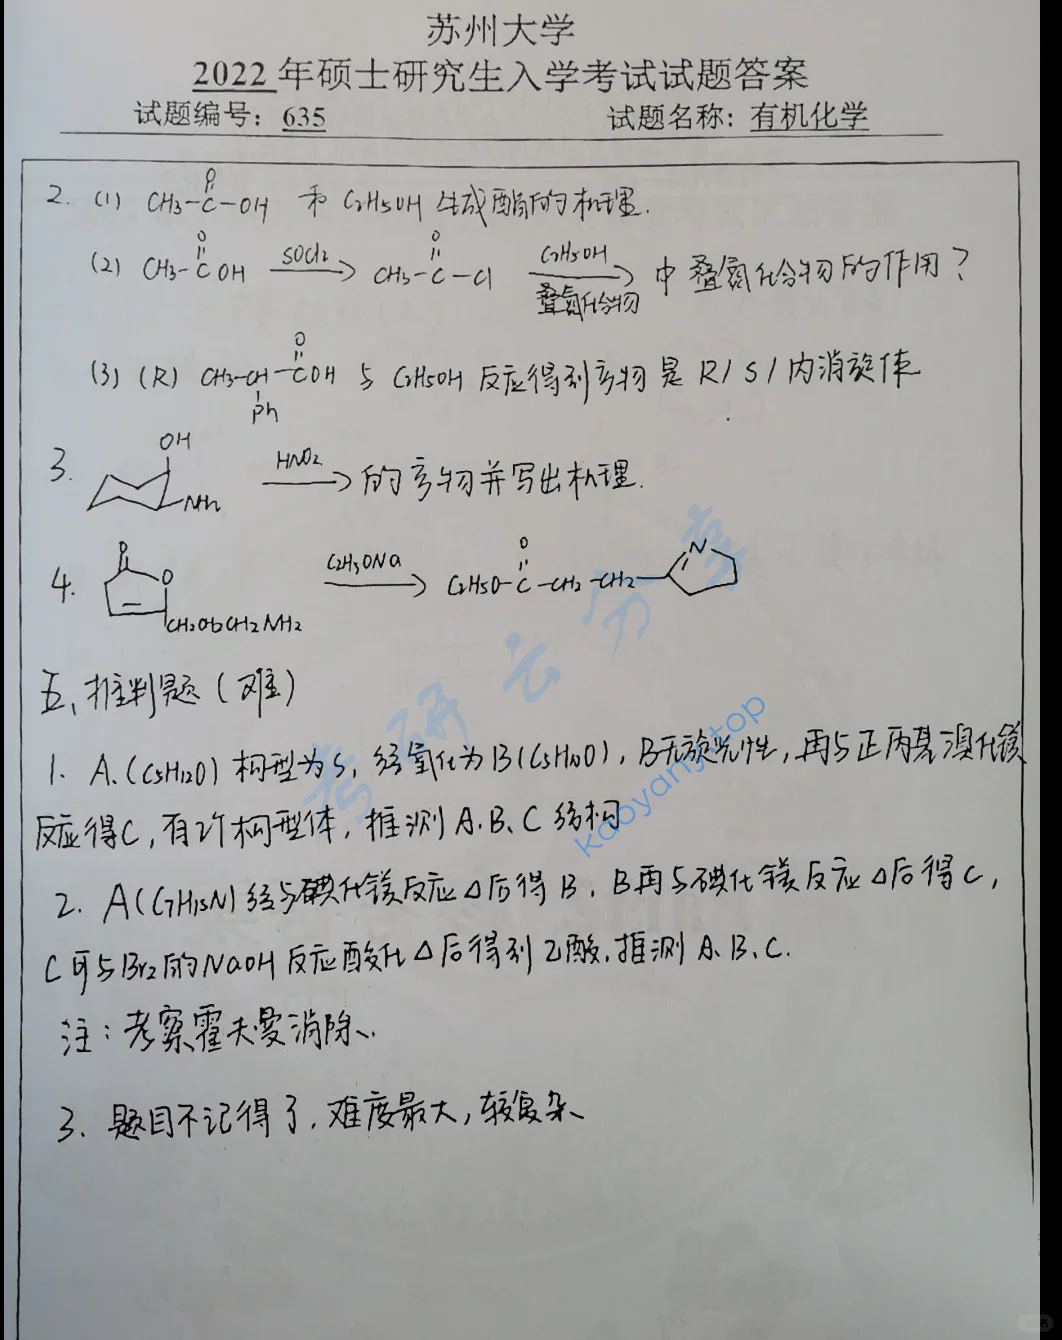 苏州大学
2022年硕士研究生入学考试试题答案
试题编号：635 试题名称：有机化学
O
2. (1) CH3-C-OH 和 C2H5OH 生成酯的机理.
O O
(2) CH3-C OH SOCl2 CH3-C-Cl C2H5OH 叠氮化合物 中叠氮化合物的作用？
O
(3) (R) CH3-CH-COH 与 C2H5OH 反应得到产物是 R/S/内消旋体
Ph
OH
3. NH2 HNO2 的产物并写出机理.
O O
4. O C2H5ONa C2H5O-C-CH2-CH2- N
五、推判题（难）
1. A.(C5H12O) 构型为S, 经氧化为B(C5H10O), B无旋光性, 再与正丙基溴化镁
反应得C, 有2个构型体, 推测A.B、C结构
2. A(C7H15N) 经与碘化镁反应△后得B, B再与碘化镁反应△后得C,
C可与Br2的NaOH反应酸化△后得到乙酸, 推测A.B、C.
注：考察霍夫曼消除、
3. 题目不记得了, 难度最大, 较复杂、
考研云分享
kaoyany.top